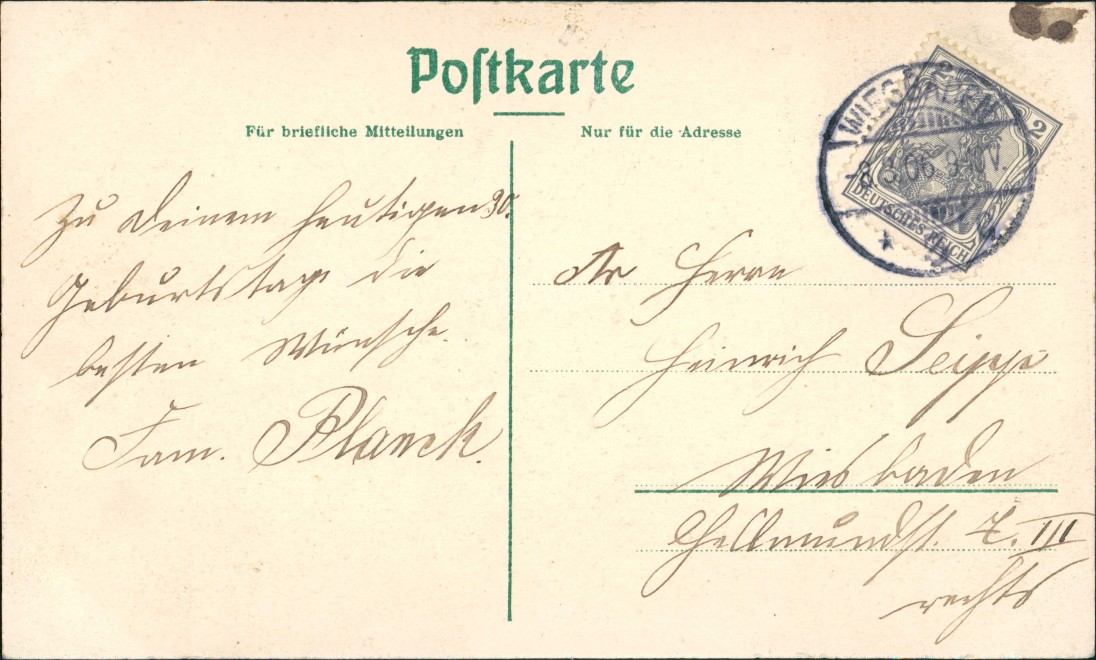 Postkarte
Für briefliche Mitteilungen
Nur für die Adresse
Zu Deinem heutigen 30.
Geburtstage die
besten Wünsche.
Fam. Planck.
WIESBADEN
3.06. 9-10V.
2
DEUTSCHES REICH
Herrn
Heinrich Seipp
Wiesbaden
Hellmundst. 7. III
rechts